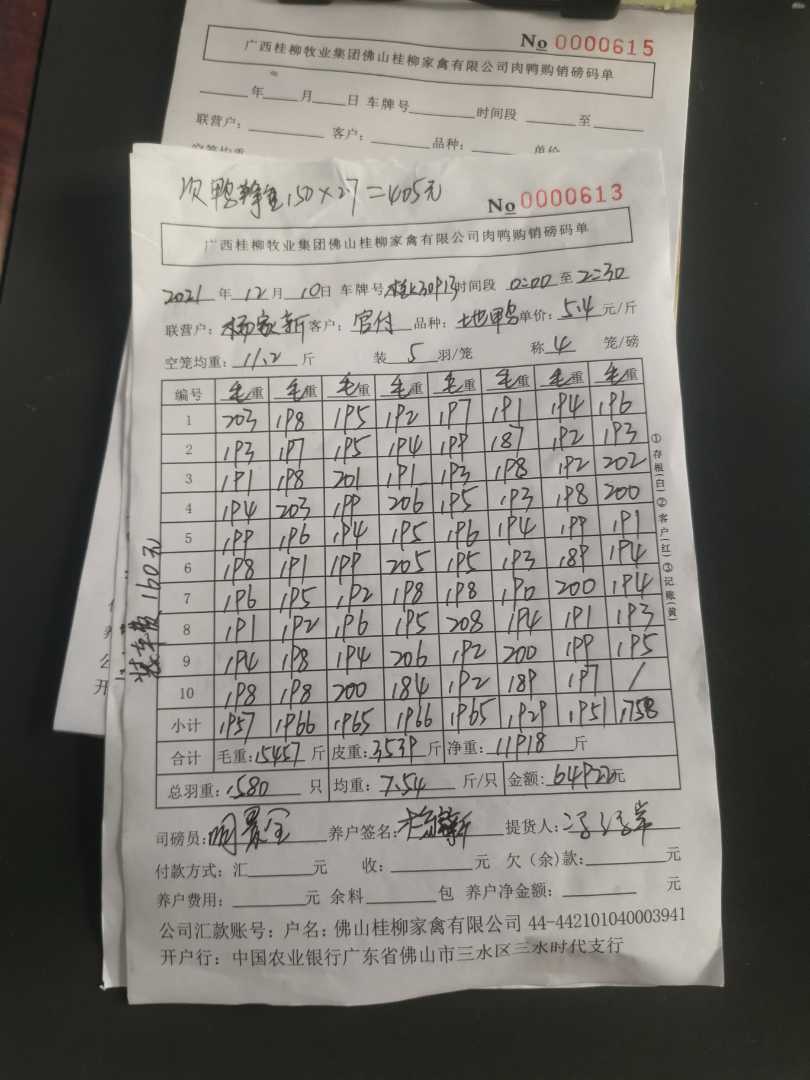 No 0000615
广西桂柳牧业集团佛山桂柳家禽有限公司肉鸭购销磅码单
年 月 日 车牌号 时间段 至
联营户： 客户： 品种： 单价
空笼均重
次鸭 150×27=405元
No 0000613
广西桂柳牧业集团佛山桂柳家禽有限公司肉鸭购销磅码单
2021 年 12 月 10 日 车牌号 时间段 0:00 至 2:30
联营户：杨家新 客户：官付 品种：土地鸭 单价：5.4 元/斤
空笼均重：11.2 斤 装 5 羽/笼 称 4 笼/磅
编号 毛重 毛重 毛重 毛重 毛重 毛重 毛重 毛重
1 203 198 195 192 197 191 194 196
2 193 197 195 194 199 187 192 193
3 191 198 201 191 193 198 192 202
4 194 203 199 206 195 193 198 200
5 199 196 194 195 196 194 199 191
6 198 191 199 205 195 193 189 194
7 196 195 192 198 198 190 200 194
8 191 192 196 195 208 194 191 193
9 194 198 194 206 192 200 199 195
10 198 198 200 184 192 189 197 /
小计 1957 1966 1965 1966 1965 1929 1951 1758
合计 毛重：15457 斤 皮重：3539 斤 净重：11918 斤
总羽重：1580 只 均重：7.54 斤/只 金额：64922元
司磅员： 养户签名： 提货人：
付款方式：汇 元 收： 元 欠（余）款： 元
养户费用： 元 余料 包 养户净金额： 元
公司汇款账号：户名：佛山桂柳家禽有限公司 44-442101040003941
开户行：中国农业银行广东省佛山市三水区三水时代支行
①存根(白)②客户(红)③记账(黄)
装车费 160元